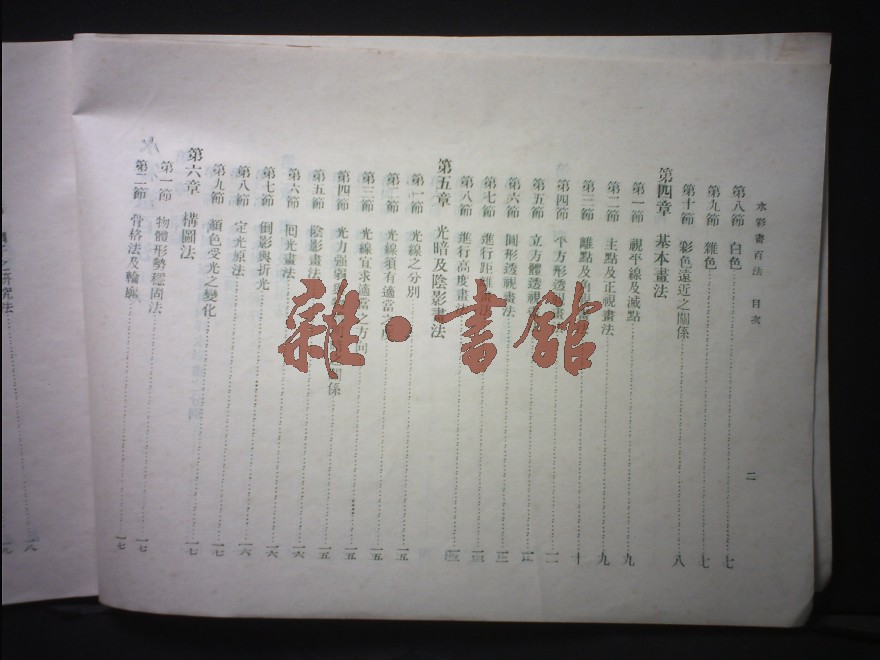 水彩畫百法 目次
二
第八節 白色 七
第九節 雜色 七
第十節 彩色遠近之關係 八
第四章 基本畫法
第一節 視平線及滅點 九
第二節 主點及正視畫法 九
第三節 離點及 十
第四節 平方形透視畫
第五節 立方體透視
第六節 圓形透視畫法
第七節 進行距離畫法
第八節 進行高度畫
第五章 光暗及陰影畫法
第一節 光線之分別 一五
第二節 光線須有適當 一五
第三節 光線宜求適當之方向 一五
第四節 光力强弱 關係 一五
第五節 陰影畫法 一五
第六節 回光畫法 一六
第七節 倒影與折光 一六
第八節 定光原法 一六
第九節 顏色受光之變化 一七
第六章 構圖法 一七
第一節 物體形勢穩固法 一七
第二節 骨格法及輪廓 一七
之研究法 一八
雜·書館